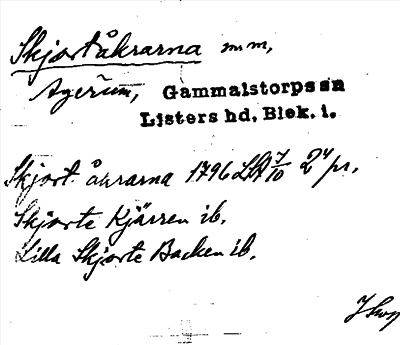 Skjortåkrarna m m,
Agerum, Gammalstorps sn
Listers hd, Blek. l.
Skjort åkrarna 1796 LA 7/10 2 pr.
Skjorte Kjärren ib.
Lilla Skjorte Backen ib.